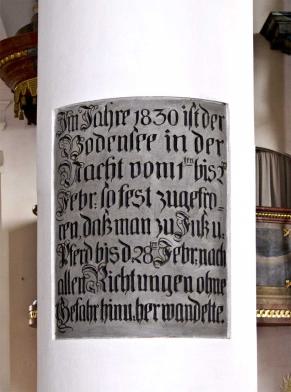 Im Jahre 1830 ist der
Bodensee in der
Nacht vom 1ten bis 2ten
Febr: so fest zugefro-
ren, daß man zu Fuß u.
Pferd bis d. 28ten Febr. nach
allen Richtungen ohne
Gefahr hin u. her wandelte.